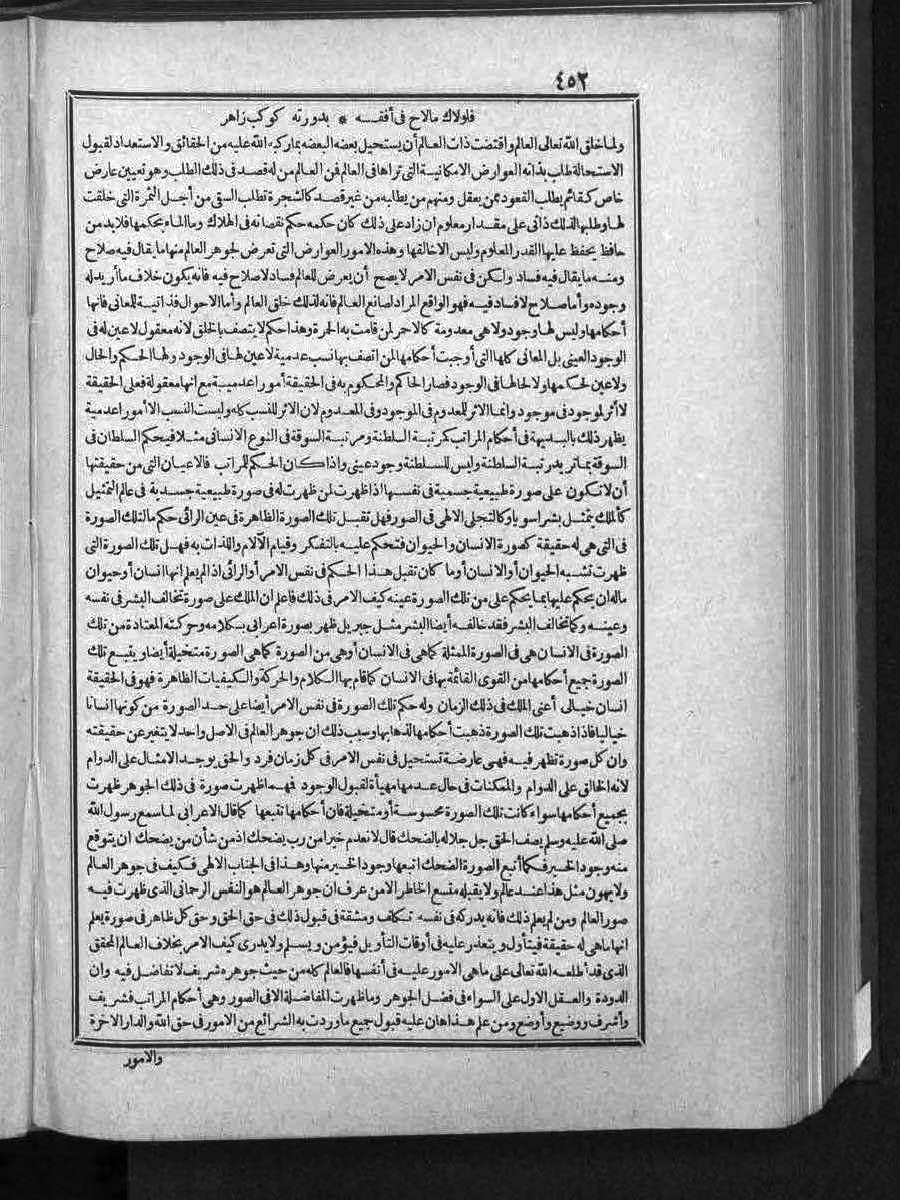 ٤٥٢
فلولاك مالاح فى أفقه * بدورته كوكب زاهر
ولما خلق الله تعالى العالم واقتضت ذات العالم أن يستحيل بعضه لبعضه بما ركبه الله عليه من الحقائق والاستعداد لقبول
الاستحالة طلب بذاته العوارض الامكانية التى تراها فى العالم فمن العالم من له قصد فى ذلك الطلب وهو تعيين عارض
خاص كقائم يطلب القعود ممن يعقل ومنهم من يطلبه من غير قصد كالشجرة تطلب السقى من أجل الثمرة التى خلقت
لها وطلبها لذلك ذاتى على مقدار معلوم ان زاد على ذلك كان حكمه حكم نقصانه فى الهلاك وما الماء بحكمها فلا بد من
حافظ يحفظ عليها القدر المعلوم وليس الا خالقها وهذه الامور العوارض التى تعرض لجوهر العالم منها ما يقال فيه صلاح
ومنه ما يقال فيه فساد ولكن فى نفس الامر لا يصح أن يعرض للعالم فساد لا صلاح فيه فانه يكون خلاف ما أريد له
وجوده وأما صلاح لا فساد فيه فهو الواقع المراد لصانع العالم فانه لذلك خلق العالم وأما الاحوال فذاتية للمعانى فانها
أحكامها وليس لها وجود ولا هى معدومة كالاحر لمن قامت به الحرة وهذا حكم لا يتصف بالخلق لانه معقول لا عين له فى
الوجود العينى بل المعانى كلها التى أوجبت أحكامها لمن اتصف بها نسب عدمية لا عين لها فى الوجود ولها الحكم والحال
ولا عين لحكمها ولا لحالها فى الوجود فصار الحاكم والمحكوم به فى الحقيقة أمورا عدمية مع انها معقولة فعلى الحقيقة
لا أثر لموجود فى موجود وانما الاثر للمعدوم فى الموجود وفى المعدوم لان الاثر للنسب كله وليست النسب الا أمورا عدمية
يظهر ذلك بالبديهة فى أحكام المراتب كمرتبة السلطنة ومرتبة السوقة فى النوع الانسانى مثلا فيحكم السلطان فى
السوقة بما تريد رتبة السلطنة وليس للسلطنة وجود عينى واذا كان الحكم للمراتب فالاعيان التى من حقيقتها
أن لا تكون على صورة طبيعية جسمية فى نفسها اذا ظهرت لمن ظهرت له فى صورة طبيعية جسدية فى عالم التمثيل
كالملك يتمثل بشرا سويا وكالتجلى الالهى فى الصور فهل تقبل تلك الصورة الظاهرة فى عين الرائى حكم ما لتلك الصورة
فى التى هى له حقيقة كصورة الانسان والحيوان فتحكم عليه بالتفكر وقيام الآلام واللذات به فهل تلك الصورة التى
ظهرت تشبه الحيوان أو الانسان أو ما كان تقبل هذا الحكم فى نفس الامر أو الرائى اذا لم يعلم انها انسان أو حيوان
ماله ان يحكم عليها بما يحكم على من تلك الصورة عينه كيف الامر فى ذلك فاعلم ان الملك على صورة تخالف البشر فى نفسه
وعينه وكما تخالف البشر فقد خالفه أيضا البشر مثل جبريل ظهر بصورة اعرابى بكلامه وحركته المعتادة من تلك
الصورة فى الانسان هى فى الصورة الممثلة كما هى فى الانسان أو هى من الصورة كما هى الصورة متخيلة أيضا ويتبع تلك
الصورة جميع أحكامها من القوى القائمة بها فى الانسان كما قام بها الكلام والحركة والكيفيات الظاهرة فهو فى الحقيقة
انسان خيالى أعنى الملك فى ذلك الزمان وله حكم تلك الصورة فى نفس الامر أيضا على حد الصورة من كونها انسانا
خياليا فاذا ذهبت تلك الصورة ذهبت أحكامها لذهابها وسبب ذلك ان جوهر العالم فى الاصل واحد لا يتغير عن حقيقته
وان كل صورة تظهر فيه فهى عارضة تستحيل فى نفس الامر فى كل زمان فرد والحق يوجد الامثال على الدوام
لانه الخالق على الدوام والممكنات فى حال عدمها مهيأة لقبول الوجود فمهما ظهرت صورة فى ذلك الجوهر ظهرت
بجميع أحكامها سواء كانت تلك الصورة محسوسة أو متخيلة فان أحكامها تتبعها كما قال الاعرابى لما سمع رسول الله
صلى الله عليه وسلم يصف الحق جل جلاله بالضحك قال لا نعدم خيرا من رب يضحك اذ من شأن من يضحك ان يتوقع
منه وجود الخير فكما أتبع الصورة الضحك اتبعها وجود الخير منها وهذا فى الجناب الالهى فكيف فى جوهر العالم
ولا يهون مثل هذا عند عالم ولا يقبله متسع الخاطر الا من عرف ان جوهر العالم هو النفس الرحمانى الذى ظهرت فيه
صور العالم ومن لم يعلم ذلك فانه يدركه فى نفسه تكلف ومشقة فى قبول ذلك فى حق الحق وحق كل ظاهر فى صورة يعلم
انها ما هى له حقيقة فيتأول ويتعذر عليه فى أوقات التأويل فيؤمن ويسلم ولا يدرى كيف الامر بخلاف العالم المحقق
الذى قد أطلعه الله تعالى على ماهى الامور عليه فى أنفسها فالعالم كله من حيث جوهره شريف لا تفاضل فيه وان
الدودة والعقل الاول على السواء فى فضل الجوهر وما ظهرت المفاضلة الا فى الصور وهى أحكام المراتب فشريف
وأشرف ووضيع وأوضع ومن علم هذا هان عليه قبول جميع ما وردت به الشرائع من الامور فى حق الله والدار الآخرة
والامور